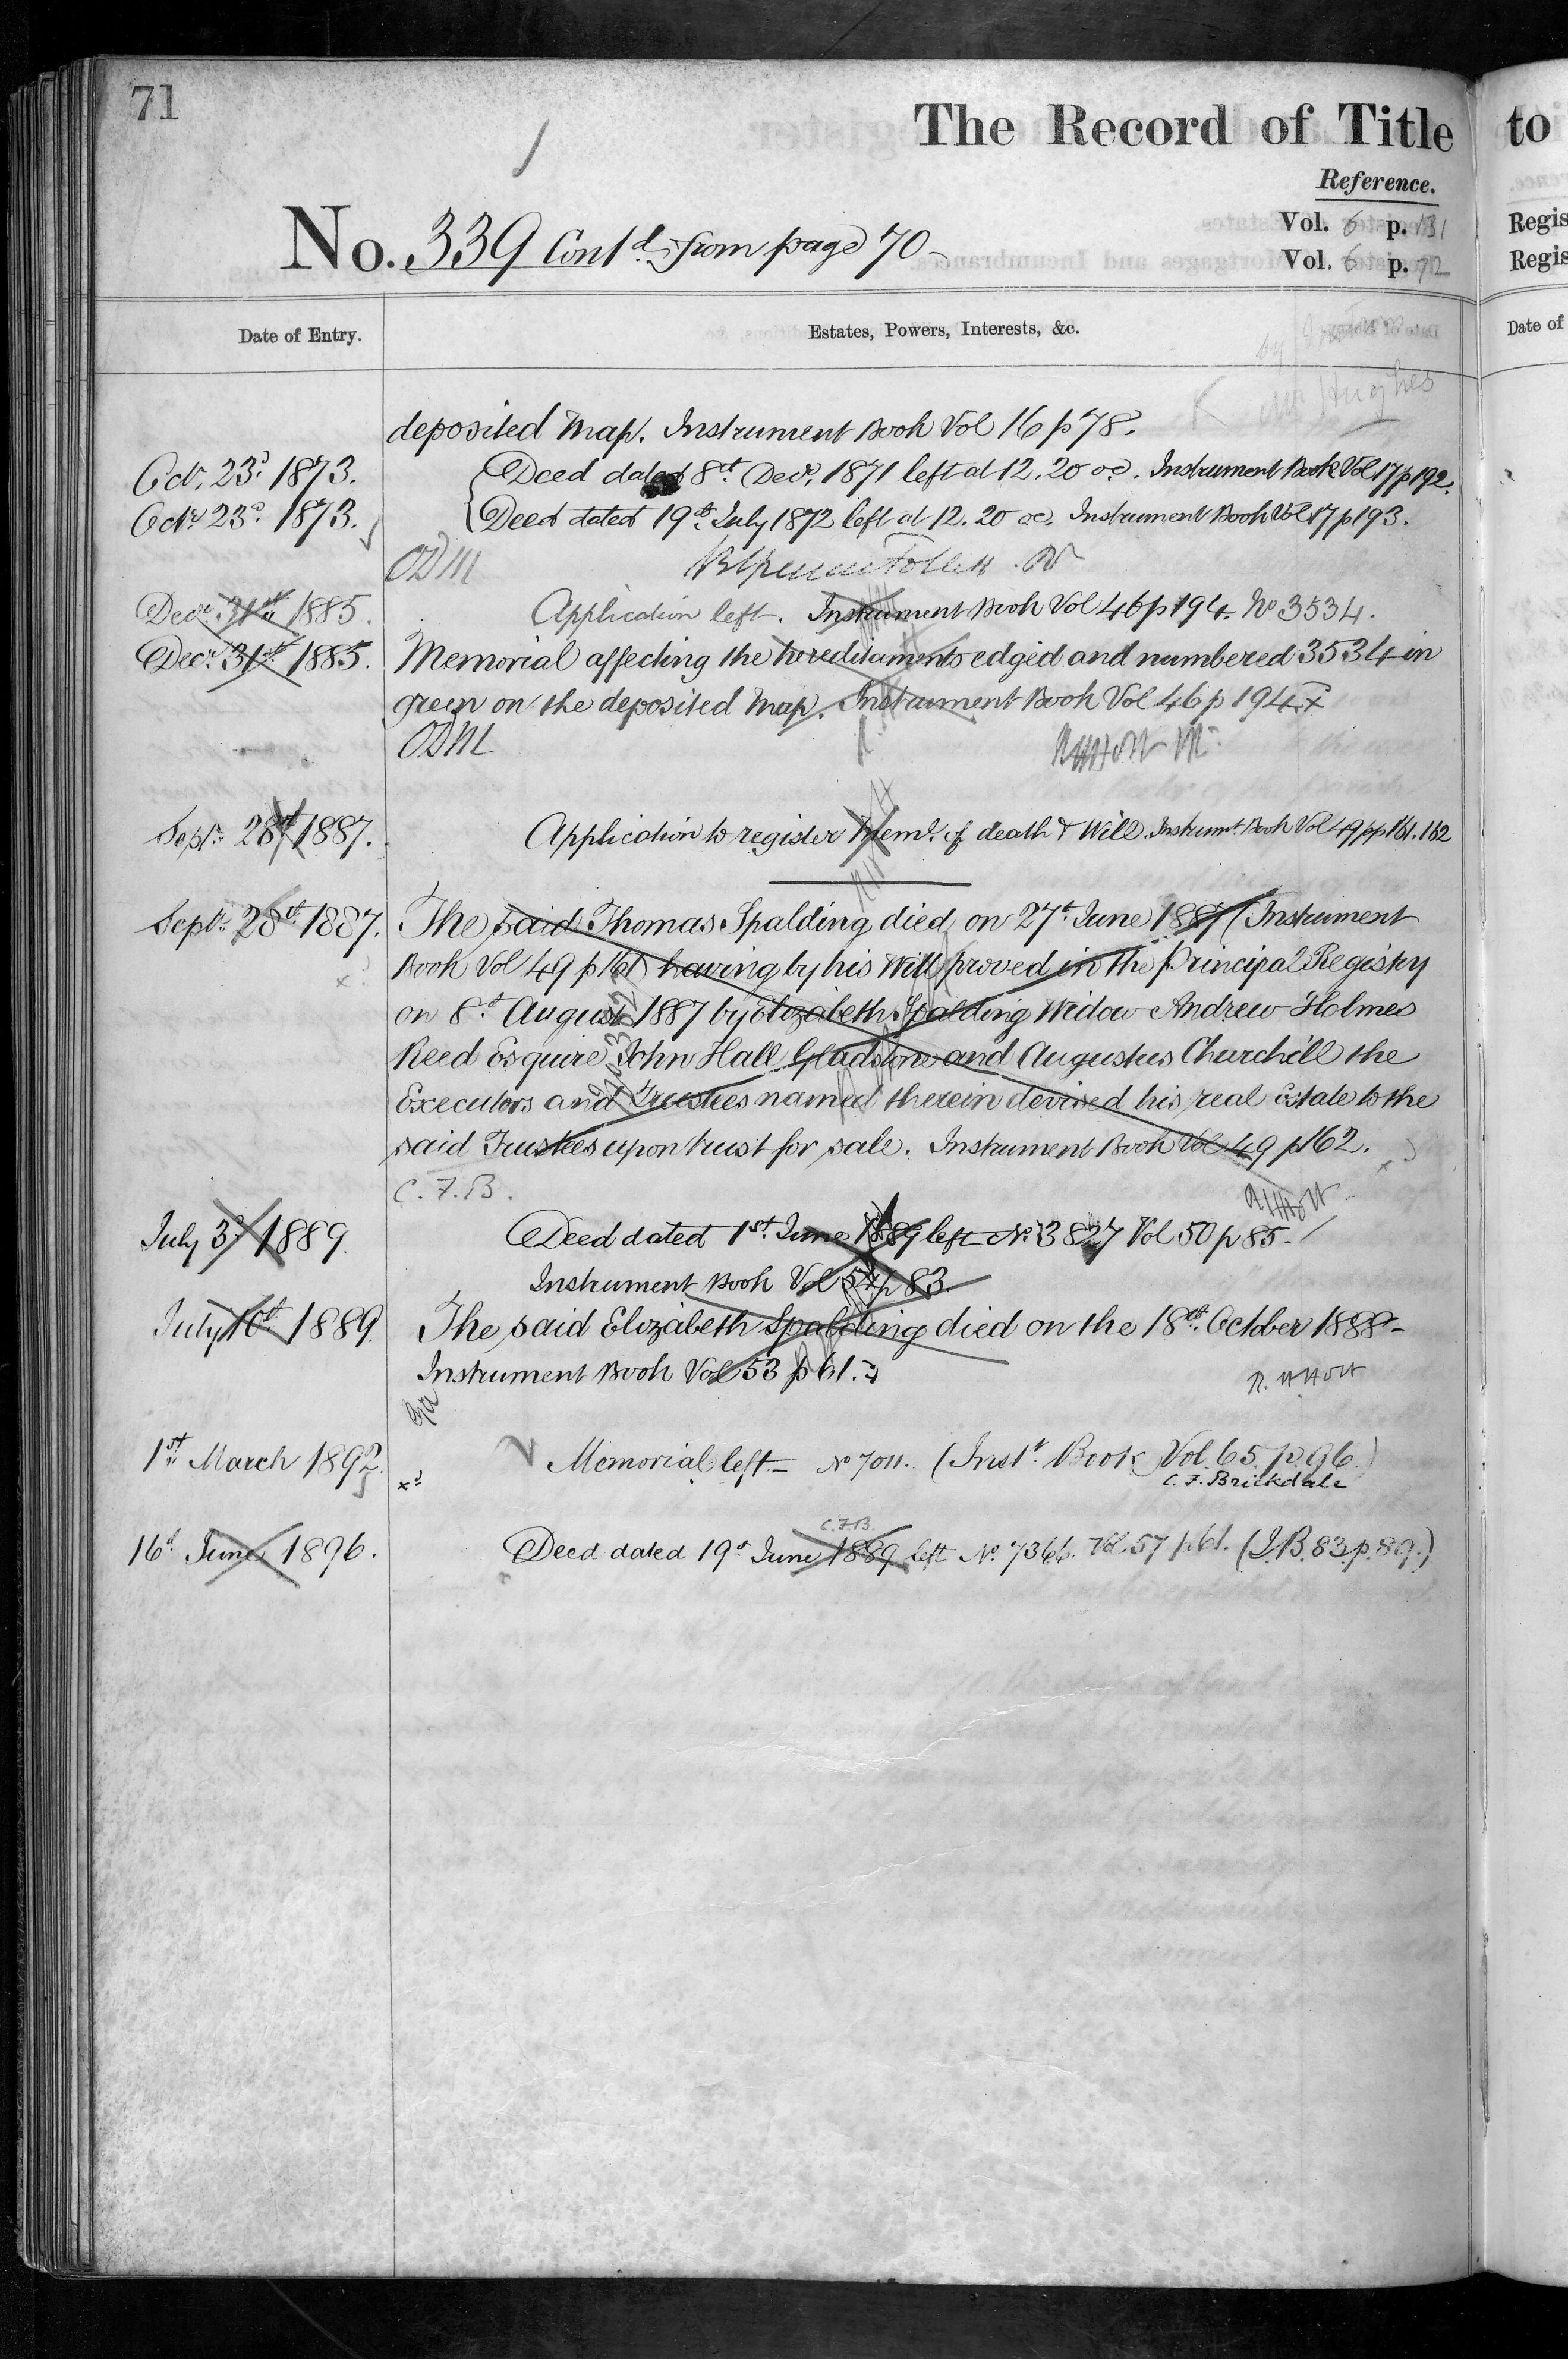 71
The Record of Title
to
Reference.
No. 339 Contd. from page 70 -
Vol. 6 p. 131
Regis
Vol. 6 p. 72
Regis
Date of Entry.
Estates, Powers, Interests, &c.
Date of
by
Mr Hughes
deposited Map. Instrument Book Vol 16 p 78.
Octr. 23d. 1873. Deed dated 8th. Decr. 1871 left at 12.20 oc. Instrument Book Vol 17 p 192.
Octr. 23d. 1873. Deed dated 19th. July 1872 left at 12.20 oc. Instrument Book Vol 17 p 193.
ODM
Decr. 31st 1885. Application left. Instrument Book Vol 46 p 194. No 3534.
Decr. 31st. 1885. Memorial affecting the hereditaments edged and numbered 3534 in
green on the deposited Map. Instrument Book Vol 46 p 194
ODM
Septr. 28th 1887. Application to register Meml. of death & Will. Instrumt. Book Vol 49 pp 161.162
Septr. 28th. 1887. The said Thomas Spalding died on 27th June 1887 (Instrument
Book Vol 49 p 161) having by his Will proved in the Principal Registry
on 8th. August 1887 by Elizabeth Spalding Widow Andrew Holmes
Reed Esquire John Hall Gladstone and Augustus Churchill the
Executors and Trustees named therein devised his real Estate to the
said Trustees upon trust for sale. Instrument Book Vol 49 p 162.
C.F.B.
July 3d. 1889. Deed dated 1st. June 1889 left No. 3827 Vol 50 p 85.
Instrument Book Vol 54 p 83.
July 10th 1889. The said Elizabeth Spalding died on the 18th. October 1888 -
Instrument Book Vol 53 p 61.
1st March 1892. Memorial left - No 7011. (Inst. Book Vol. 65. p. 96.)
C.F. Brickdale
C.F.B.
16th June 1896. Deed dated 19th June 1889 left No. 7366. Vol. 57 p. 61. (I.B. 83. p. 89.)